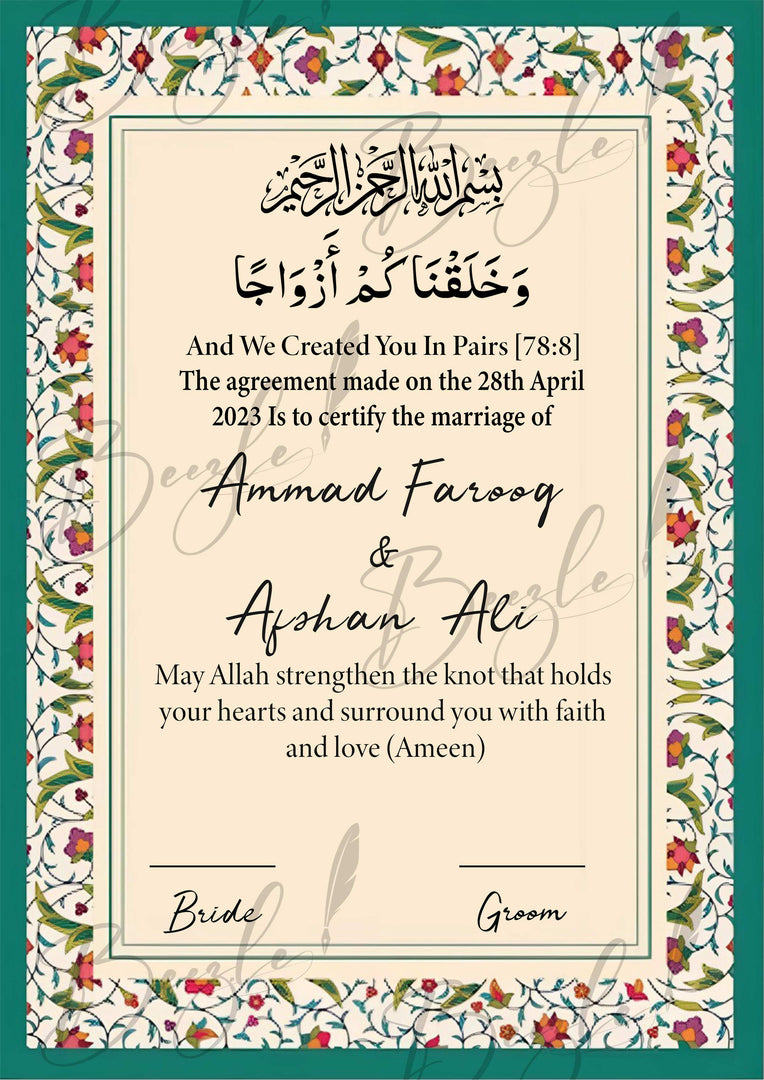 بِسْمِ اللهِ الرَّحْمٰنِ الرَّحِيْمِ
وَخَلَقْنَاكُمْ أَزْوَاجًا
And We Created You In Pairs [78:8]
The agreement made on the 28th April
2023 Is to certify the marriage of
Ammad Farooq
&
Afshan Ali
May Allah strengthen the knot that holds
your hearts and surround you with faith
and love (Ameen)
Bride
Groom
Beezle!
Beezle!
Beezle!
Beezle!
Beezle!
Beezle!